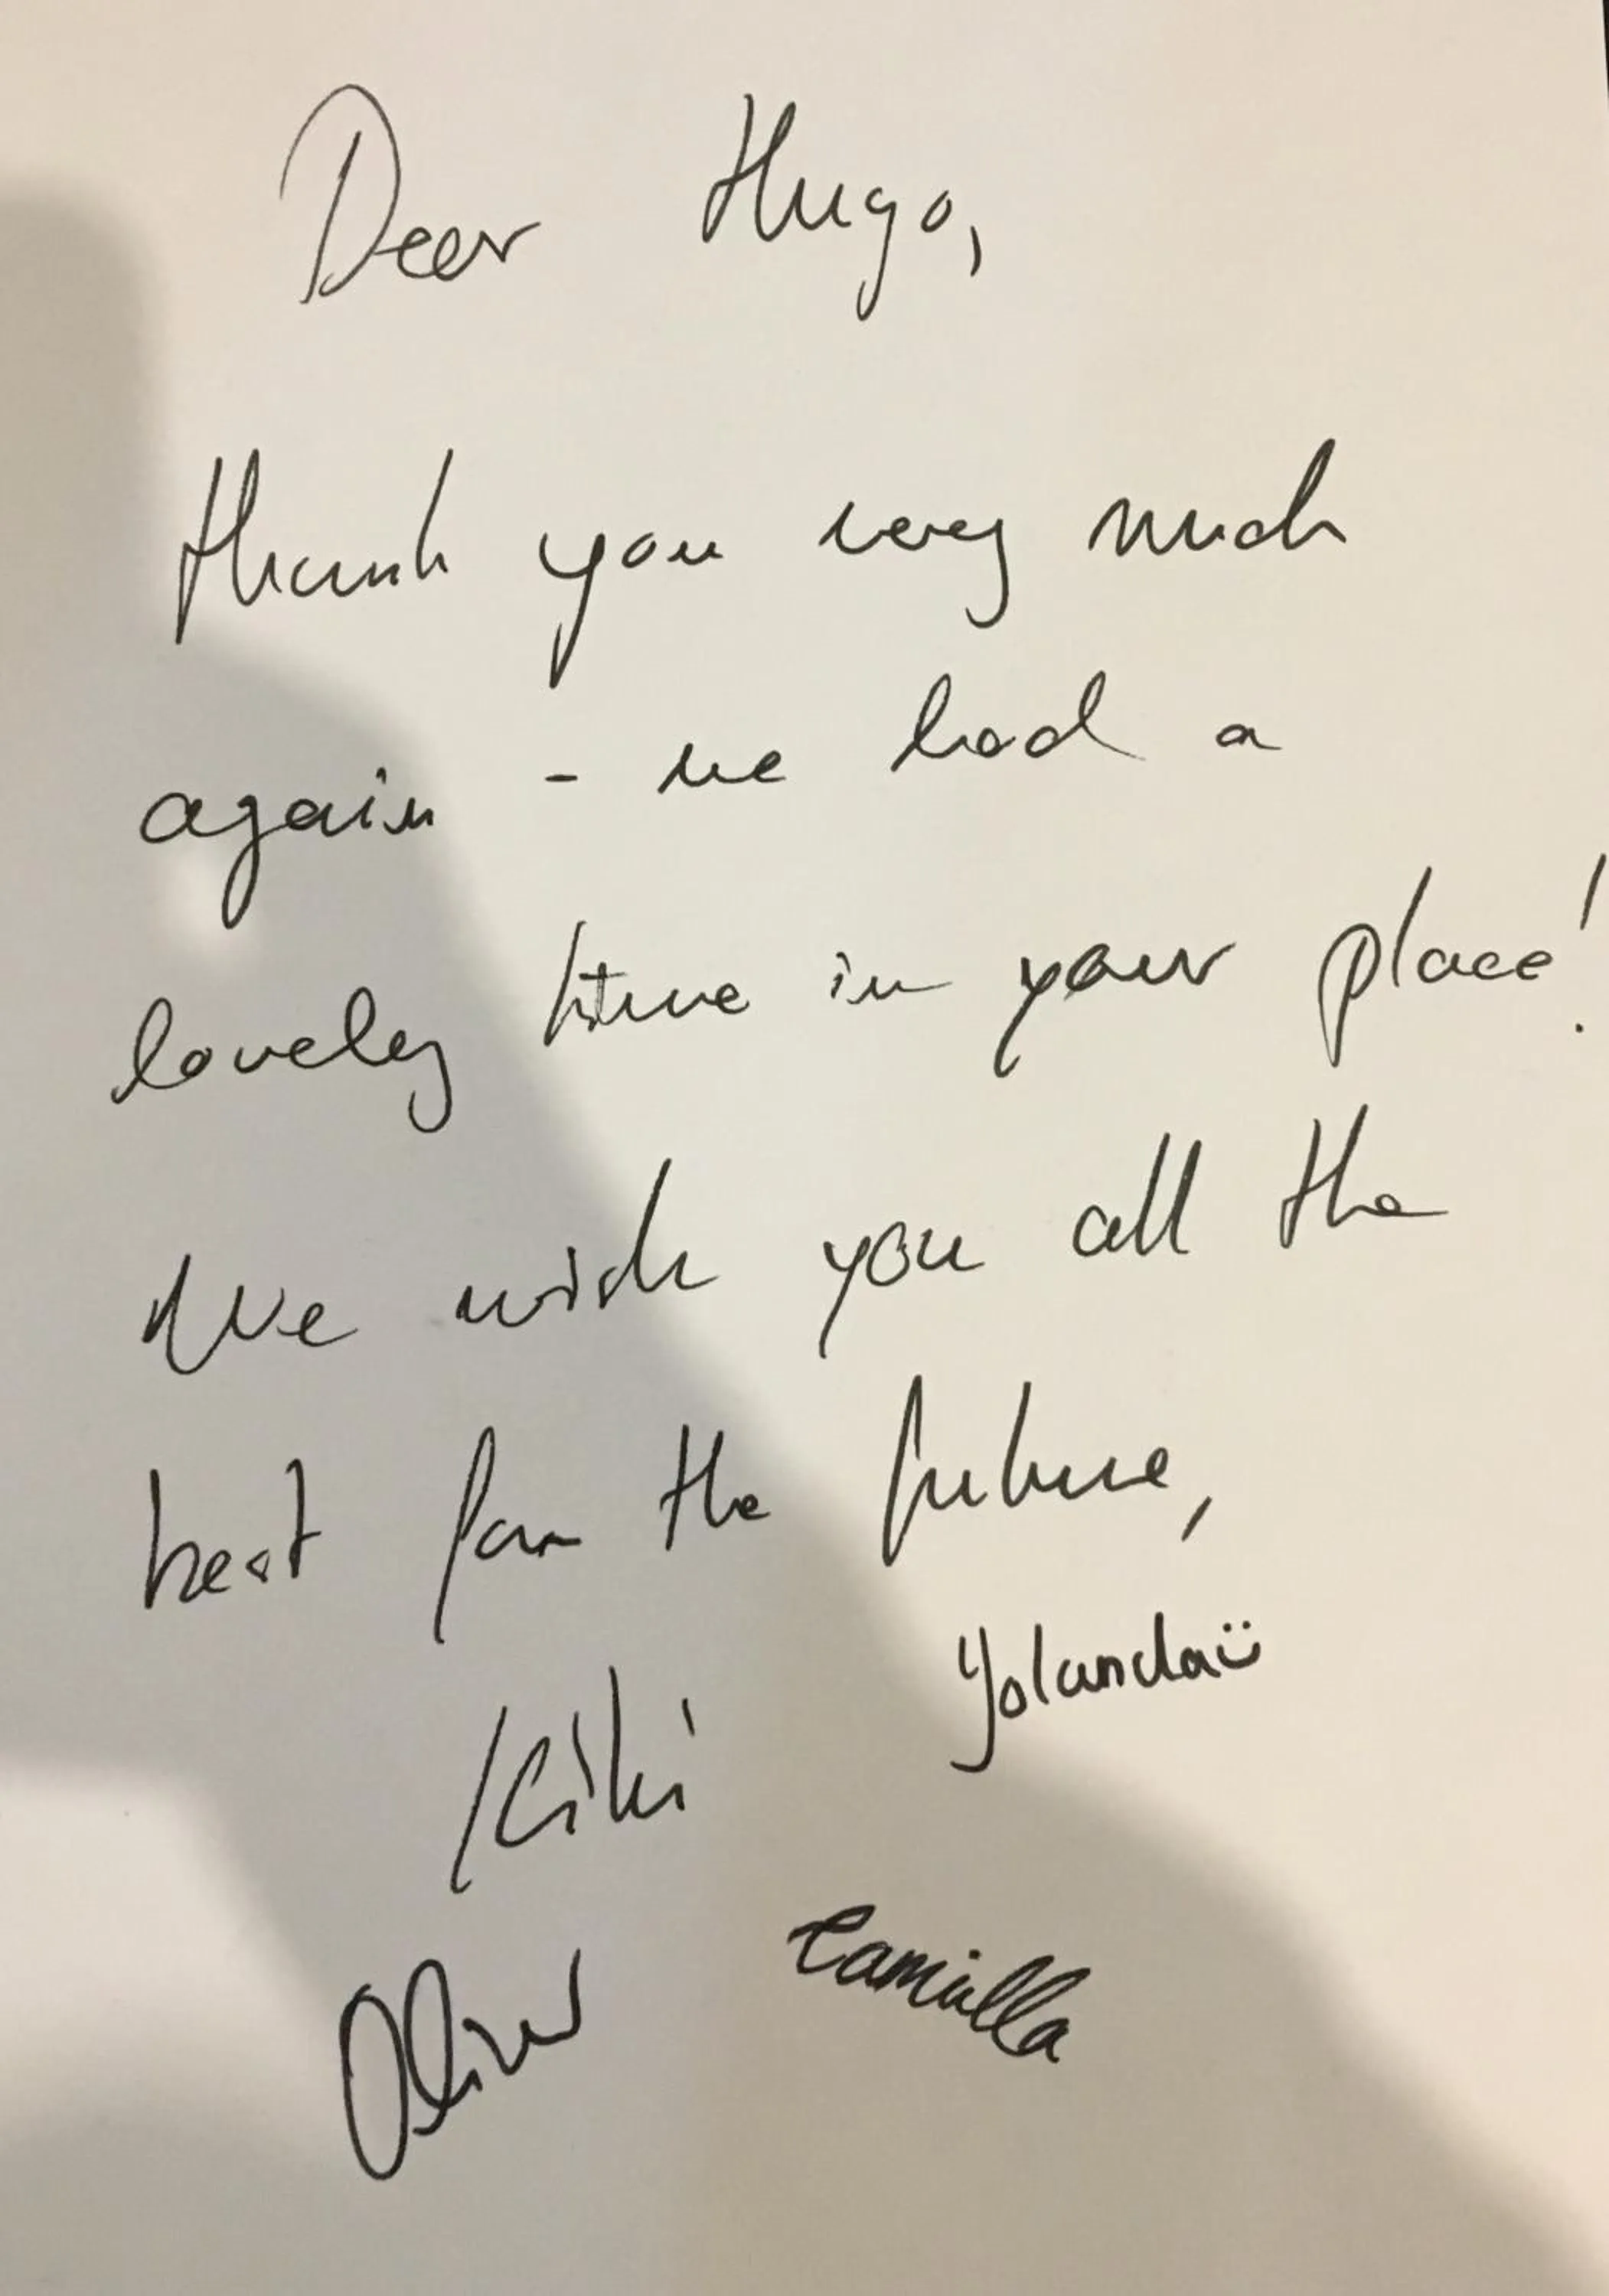 Dear Hugo,
thank you very much
again - we had a
lovely time in your place!
We wish you all the
best for the future,
Yolanda ü
Kiki
Camilla
Oliver